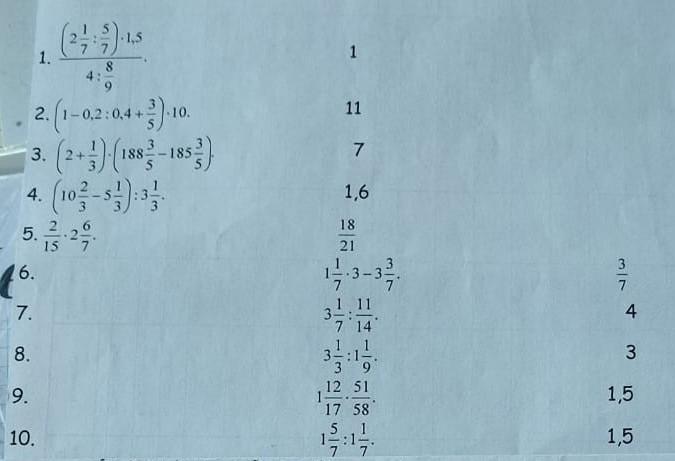 1. \frac{\left(2\frac{1}{7}:\frac{5}{7}\right)\cdot 1,5}{4:\frac{8}{9}}. 1
2. \left(1-0,2:0,4+\frac{3}{5}\right)\cdot 10. 11
3. \left(2+\frac{1}{3}\right)\cdot\left(188\frac{3}{5}-185\frac{3}{5}\right). 7
4. \left(10\frac{2}{3}-5\frac{1}{3}\right):3\frac{1}{3}. 1,6
5. \frac{2}{15}\cdot 2\frac{6}{7}. \frac{18}{21}
6. 1\frac{1}{7}\cdot 3-3\frac{3}{7}. \frac{3}{7}
7. 3\frac{1}{7}:\frac{11}{14}. 4
8. 3\frac{1}{3}:1\frac{1}{9}. 3
9. 1\frac{12}{17}\cdot\frac{51}{58}. 1,5
10. 1\frac{5}{7}:1\frac{1}{7}. 1,5